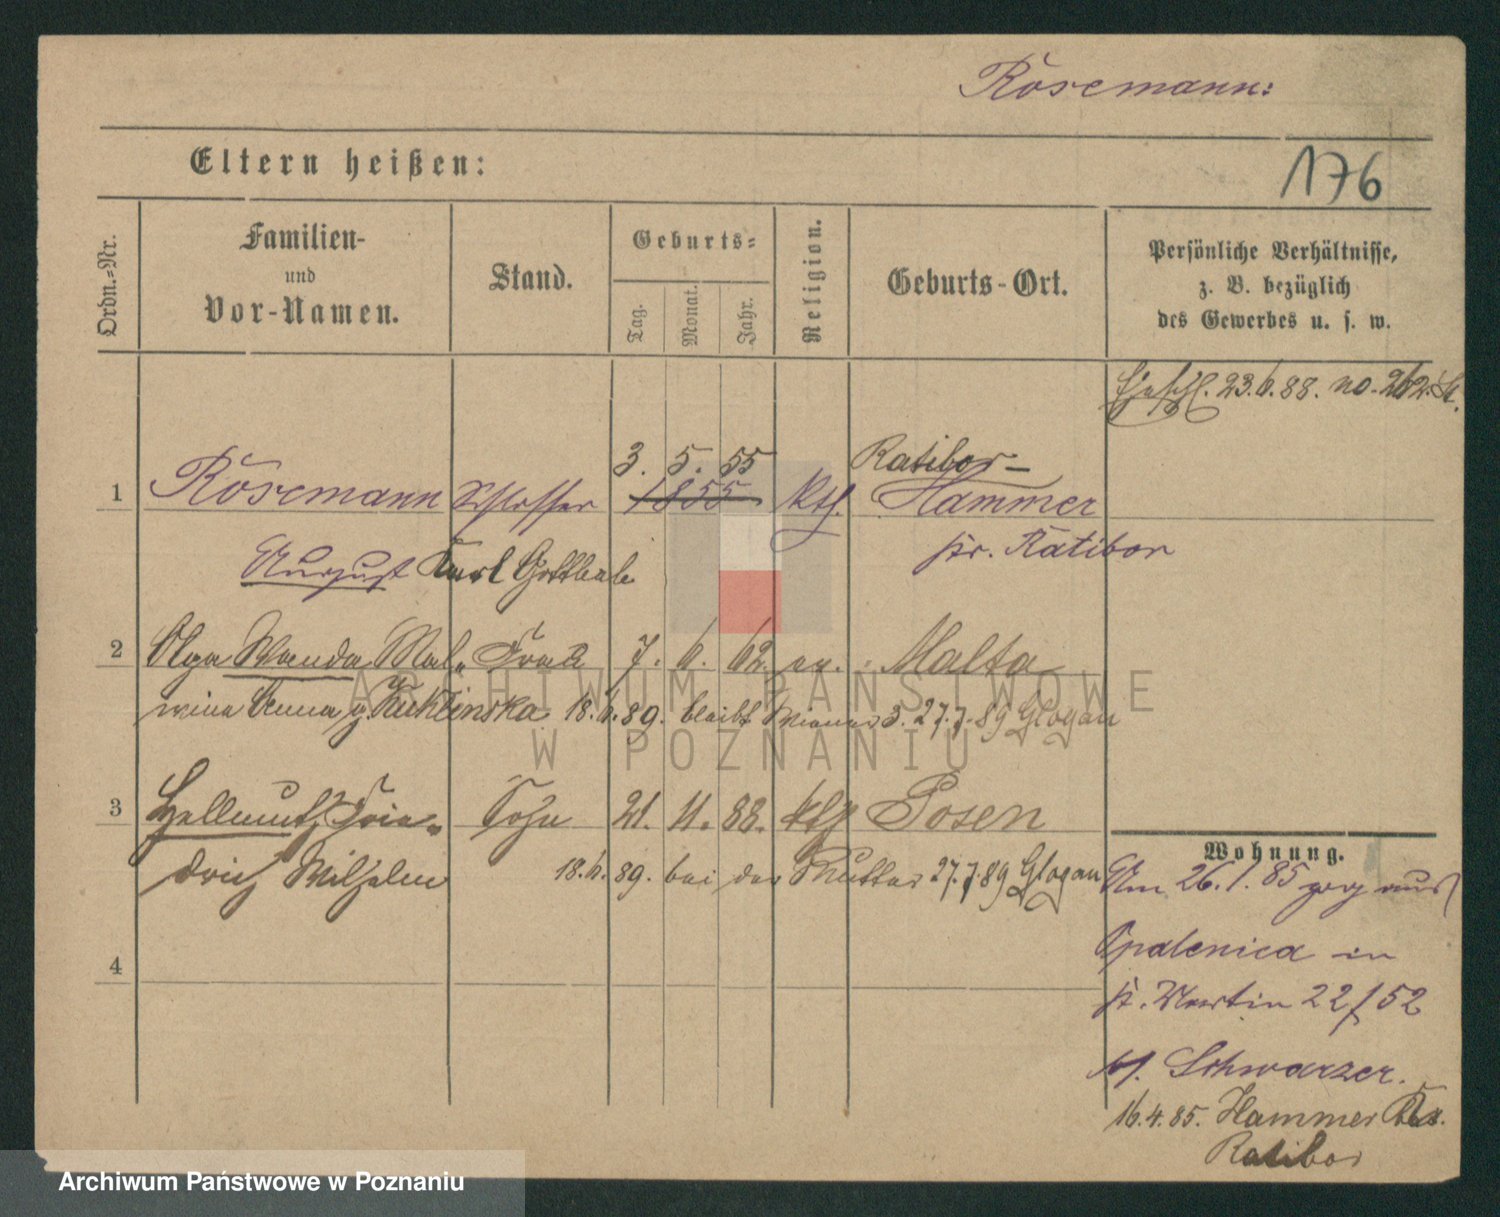 Rösemann:
Eltern heißen:
176
Ordn.=Nr.
Familien-
und
Vor-Namen.
Stand.
Geburts=
Tag.
Monat.
Jahr.
Religion.
Geburts-Ort.
Persönliche Verhältnisse,
z. B. bezüglich
des Gewerbes u. s. w.
23.6.88. no. 262
3. 5. 55 Ratibor-
1 Rösemann Schlosser 1855 kth. Hammer
August Karl Gottlieb pr. Ratibor
2 Olga Wanda Mal= Frau 7. 6. 62. ev. Malta
wina Anna g. Kuklinska 18.6.89. bleibt 27.7.89 Glogau
3 Hellmuth Frie= Sohn 21. 11. 88. kth Posen
drich Wilhelm 18.6.89. bei der Mutter 27.7.89 Glogau
4
Wohnung.
Am 26.1.85 zog aus
Opalenica in
St. Martin 22/52
b/. Schwarzer.
16.4.85. Hammer
Ratibor
ARCHIWUM PAŃSTWOWE
W POZNANIU
Archiwum Państwowe w Poznaniu